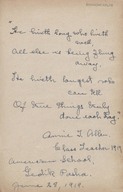 "He liveth long who liveth
well,
All else is being flung
away,
He liveth longest who
can tell
Of true things truly
done each day."
Annie T. Allen
Class Teacher 1919
American School,
Gedik Pasha.
June 29, 1919.